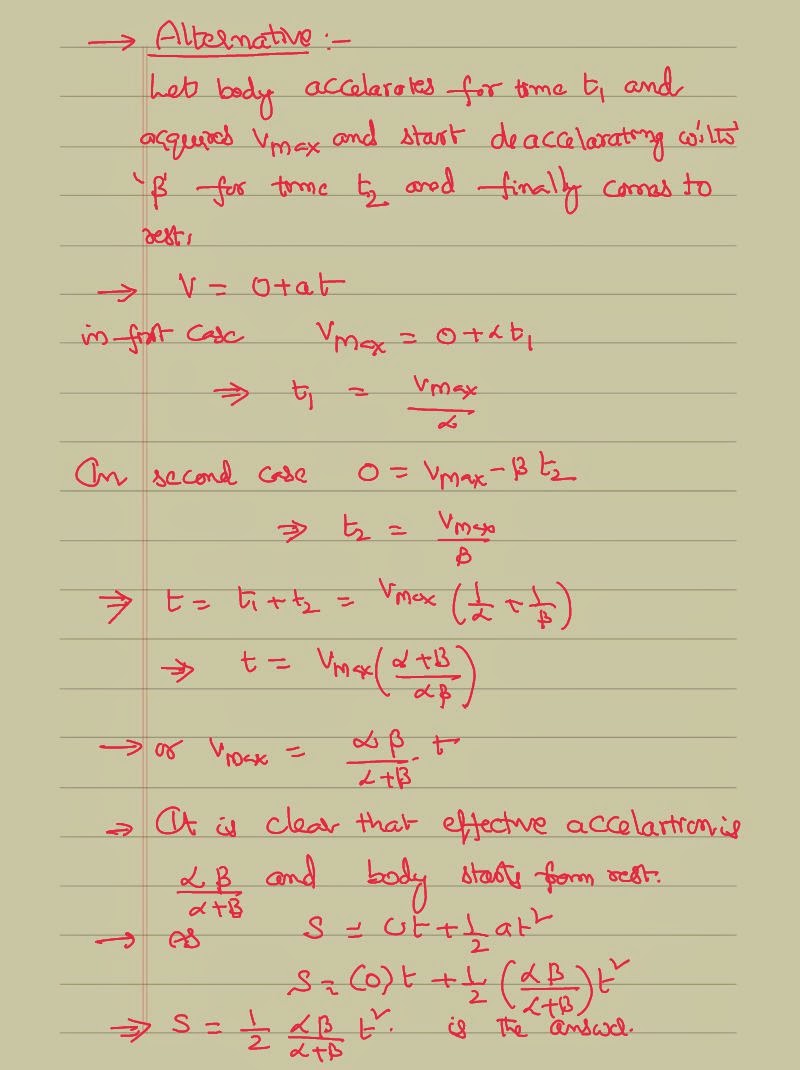 → Alternative :-
Let body accelarates for time t₁ and
acquires Vmax and start deaccelarating with
'β' for time t₂ and finally comes to
rest,
→ V = 0+at
in first case Vmax = 0+αt₁
⇒ t₁ = Vmax/α
In second case 0 = Vmax - β t₂
⇒ t₂ = Vmax/β
⇒ t = t₁ + t₂ = Vmax (1/α + 1/β)
⇒ t = Vmax((α+β)/(αβ))
→ or Vmax = αβ/(α+β) . t
→ It is clear that effective accelartion is
αβ/(α+β) and body starts form rest.
→ as S = ut + 1/2 at²
S = (0)t + 1/2 (αβ/(α+β)) t²
⇒ S = 1/2 αβ/(α+β) t². is the answer.